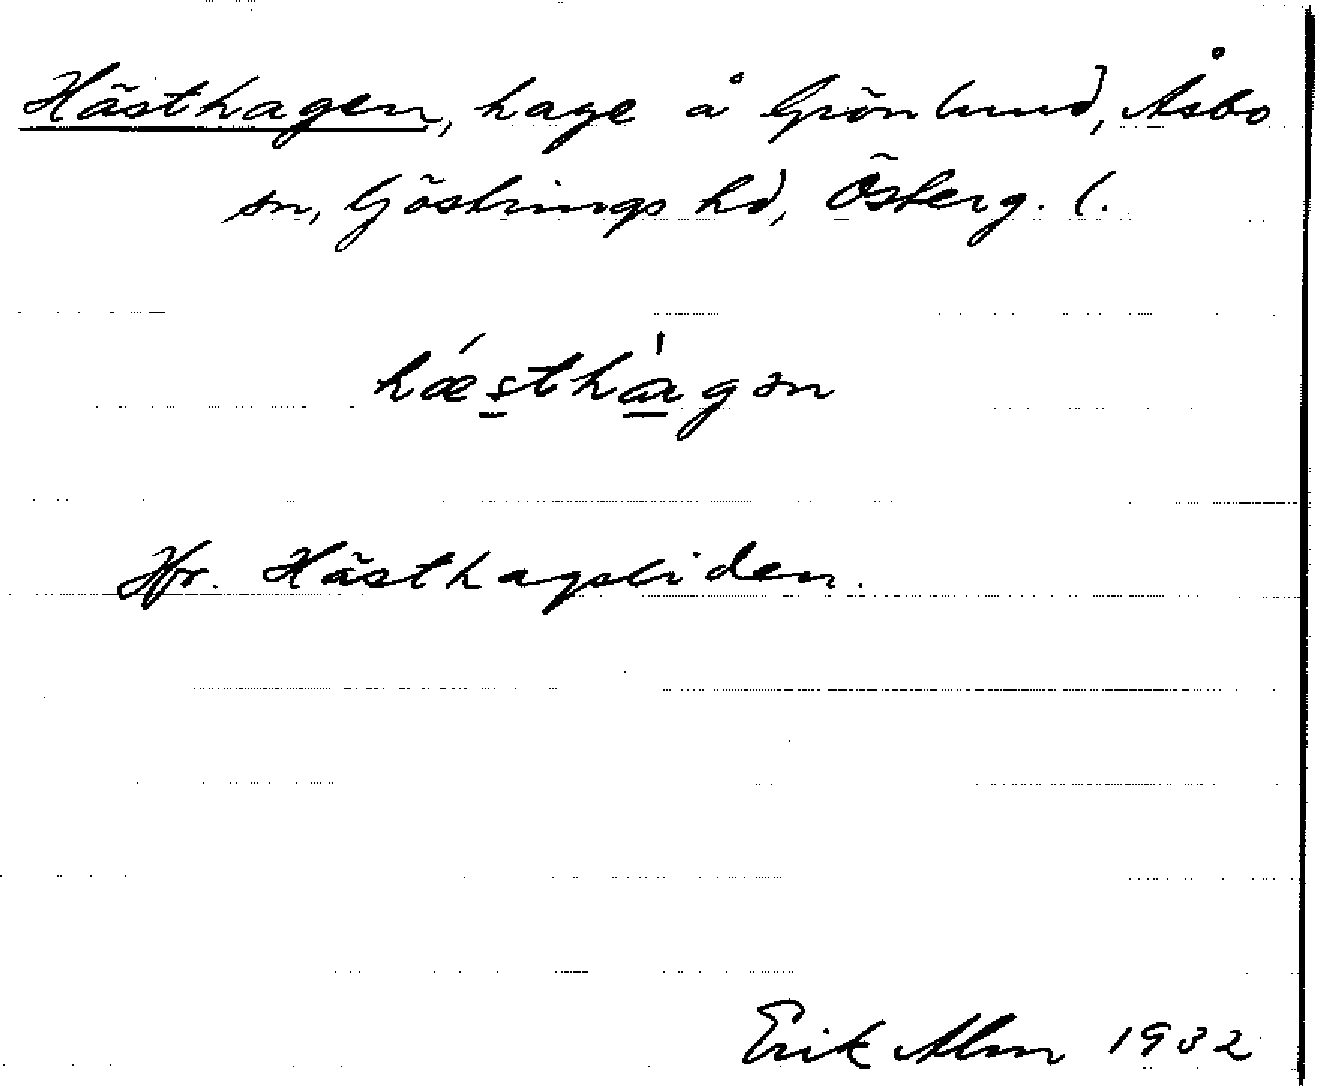 Hästhagen, hage å Grönlund, Åsbo
sn, Göstrings hd, Österg. l.
hæ´sthà̱gən
Jfr. Hästhagsliden.
Erik Alm 1932